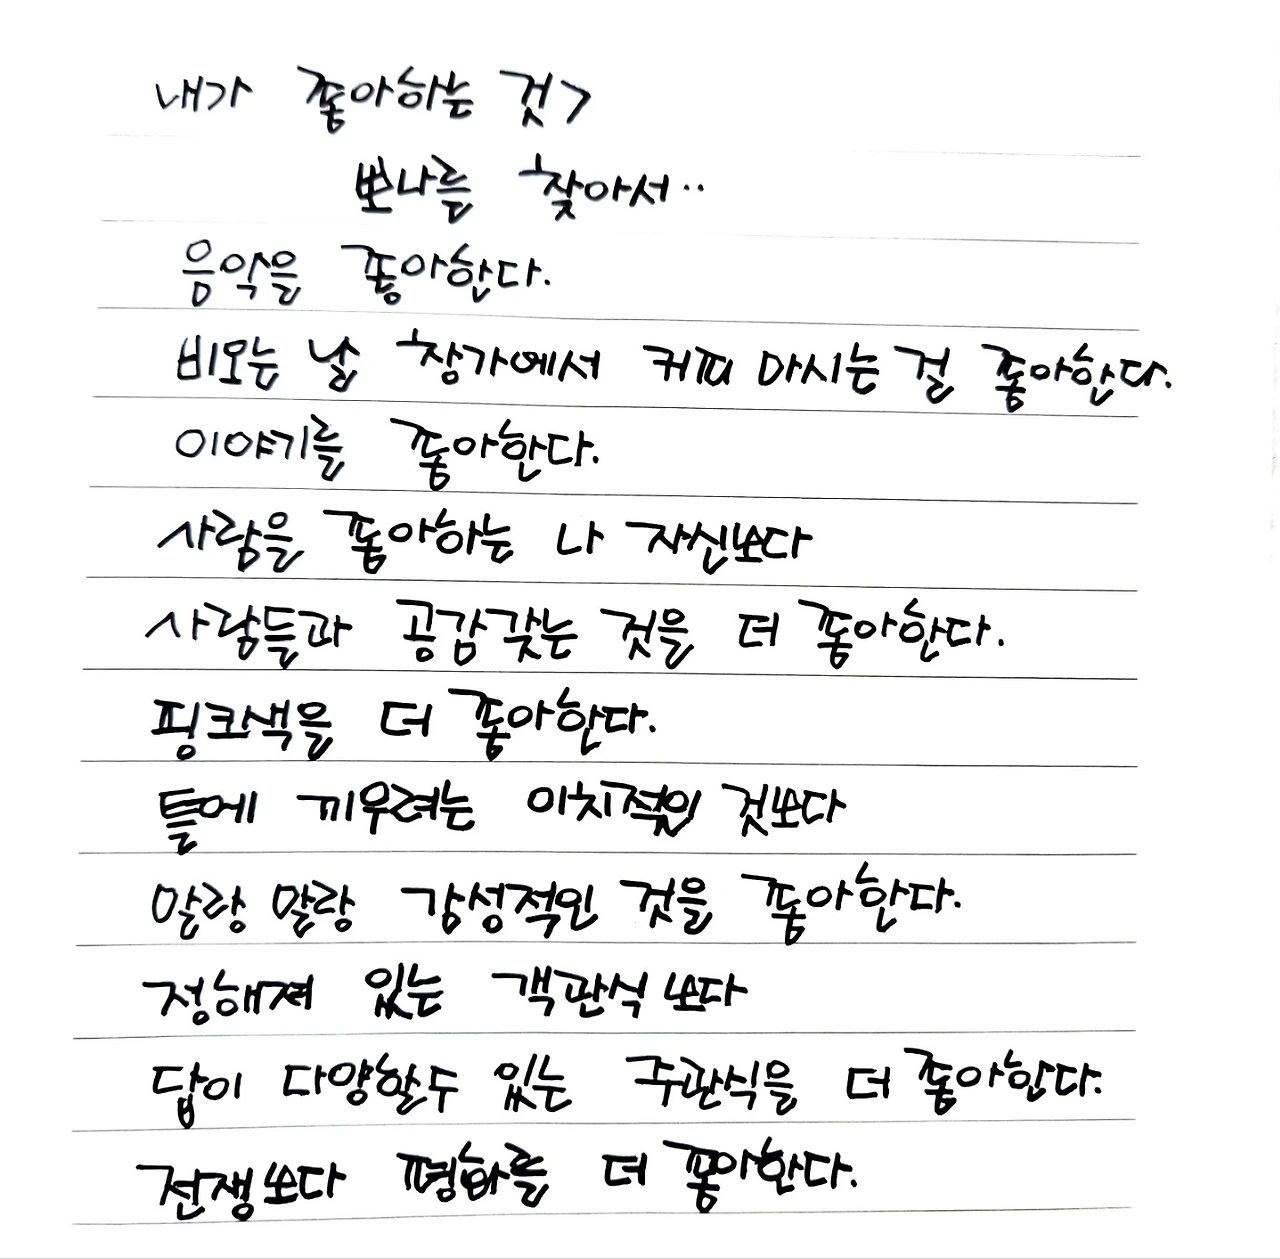 내가 좋아하는 것>
뽀나를 찾아서..
음악을 좋아한다.
비오는 날 창가에서 커피 마시는 걸 좋아한다.
이야기를 좋아한다.
사람을 좋아하는 나 자신보다
사람들과 공감갖는 것을 더 좋아한다.
핑크색을 더 좋아한다.
틀에 끼우려는 이치적인 것보다
말랑 말랑 감성적인 것을 좋아한다.
정해져 있는 객관식 보다
답이 다양할수 있는 주관식을 더 좋아한다.
전쟁보다 평화를 더 좋아한다.